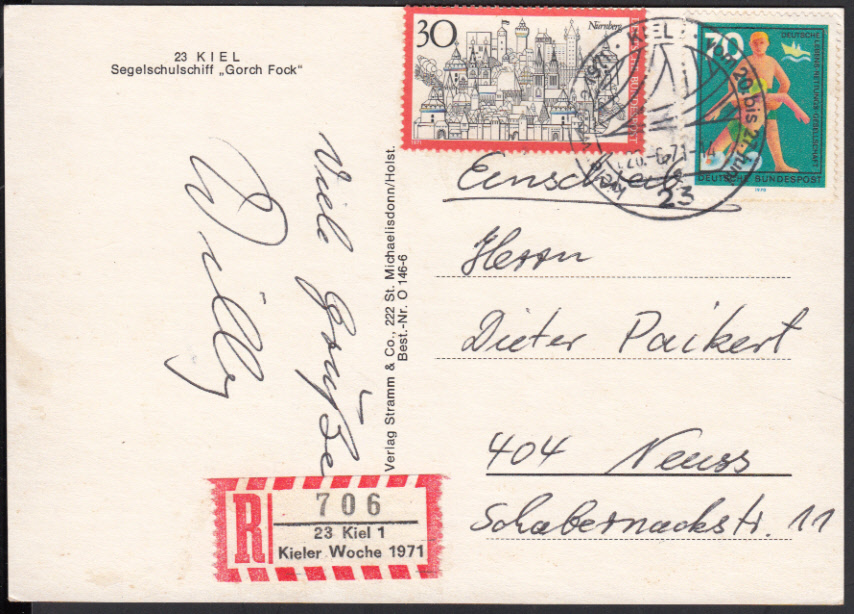 23 KIEL
Segelschulschiff „Gorch Fock“
Viele Grüße
Willy
Verlag Stramm & Co., 222 St. Michaelisdonn/Holst.
Best.-Nr. O 146-6
30
Nürnberg
DEUTSCHE BUNDESPOST
KIEL
vom 20. bis 27. Juni
1971
23
DEUTSCHE
LEBENS-RETTUNGS-GESELLSCHAFT
DEUTSCHE BUNDESPOST
1970
Einschreiben
Herrn
Dieter Paikert
404 Neuss
Schabernackstr. 11
R
706
23 Kiel 1
Kieler Woche 1971